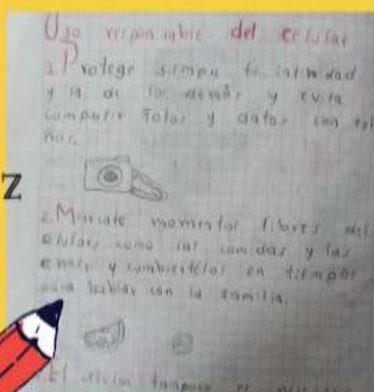 Uso responsable del celular
1. Protege siempre tu intimidad
y la de los demás y evita
compartir fotos y datos con ext
ños.
Z
2. Marcate momentos libres del
celular, como las comidas y las
cenas y conviertelos en tiempos
para hablar con la familia.
El celular tampoco es